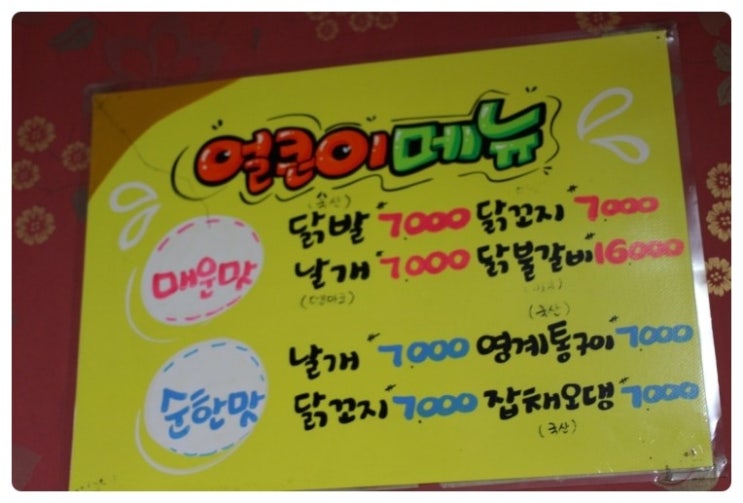 얼큰이메뉴
(국산)
매운맛
닭발 7000 닭꼬지 7000
날개 7000 닭불갈비 16000
(덴마크)
(국산)
순한맛
날개 7000 영계통구이 7000
닭꼬지 7000 잡채오댕 7000
(국산)